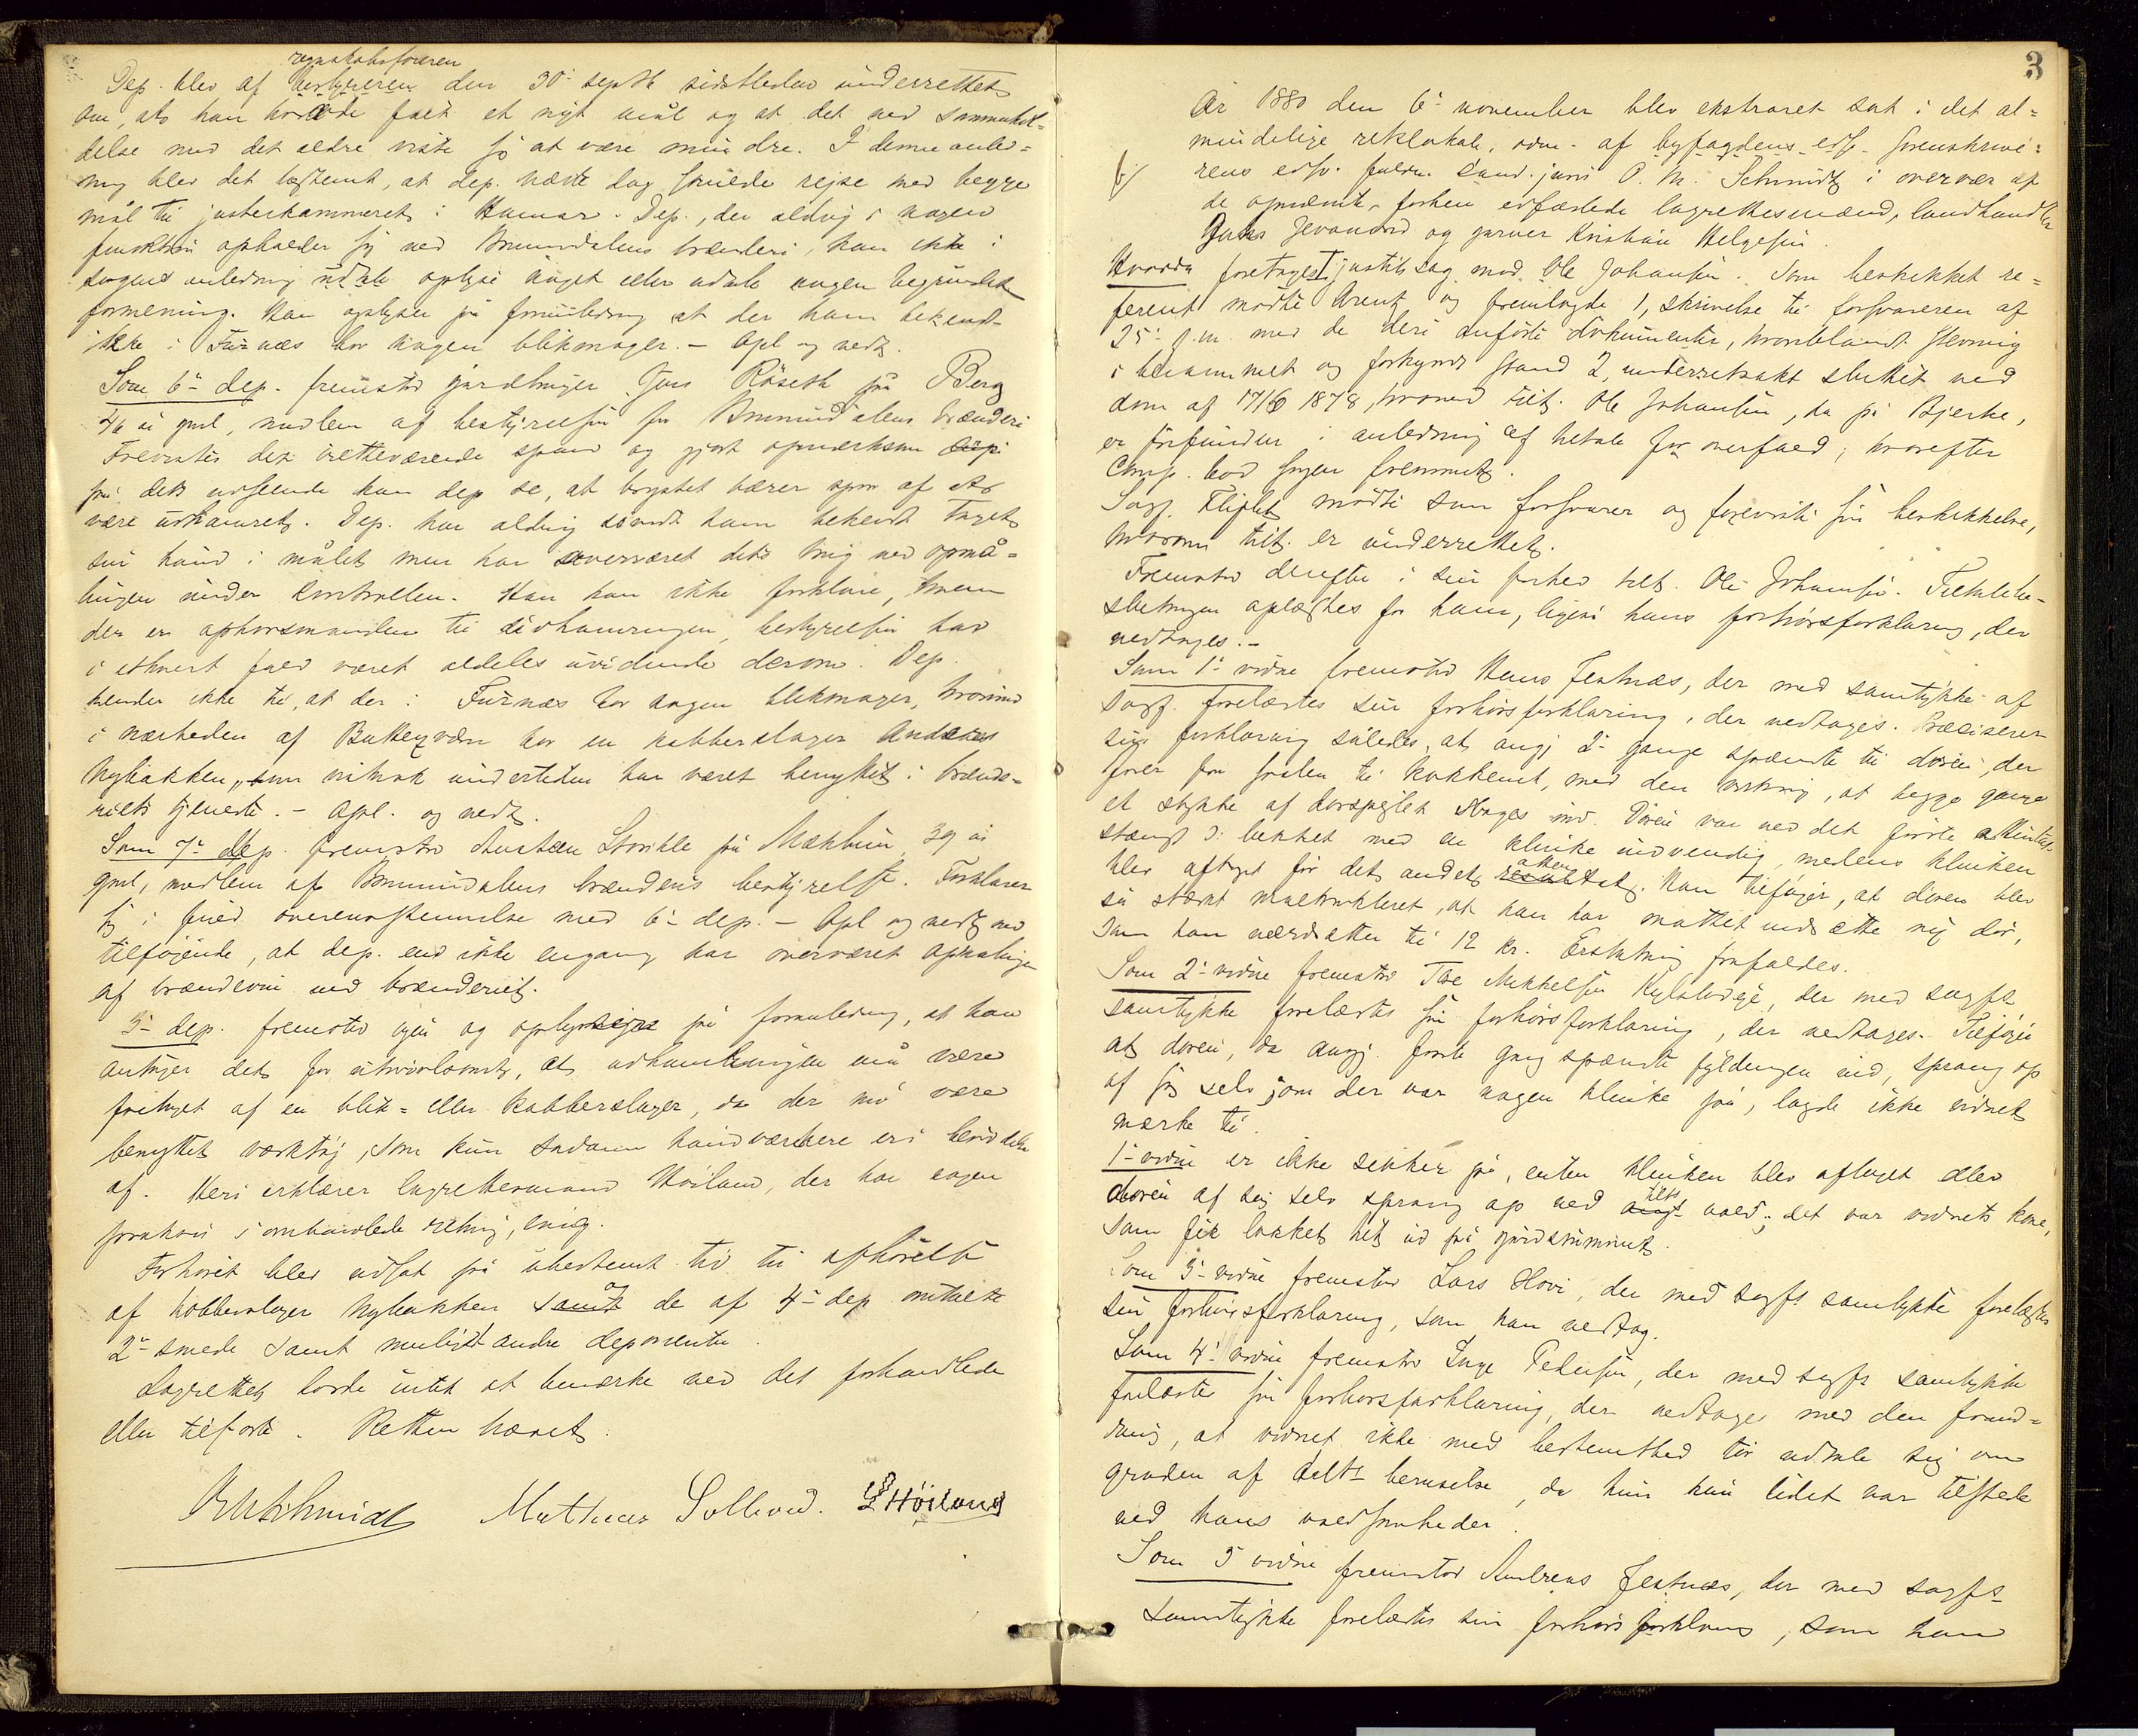 regnskabsføreren
Dep. blev af bestyreren den 30' septb sidstleden underrettet
om, at han havde fået et nyt mål og at det ved sammenhol-
delse med det ældre viste sig at være mindre. I denne anled-
ning blev det bestemt, at dep. næste dag skulde rejse med begge
mål til justerkammeret i Hamar. Dep., der aldrig i nogen
funktion opholder sig ved Brummundalens brænderi, kan ikke i
anledning oplyse noget eller udtale nogen begrundet
formening. Han oplyser på foranledning at der ham bekend-
ikke i Furnæs bor nogen blikmager. - Opl og vedt.
Som 6' dep. fremstod gårdbruger Jens Røseth på Berg
46 år gml, medlem af bestyrelsen for Brummundalens brænderi
Forevistes det iretteværende spand og gjort opmærksom
på dets udseende kan dep se, at brystet bærer spor af at
være udhamret. Dep. har aldrig såvidt ham bekendt taget
sin hånd i målet men har overværet dets brug ved opmå-
lingen under kontrollen. Han kan ikke forklare, hvem
der er ophavsmanden til udhamringen, bestyrelsen har
i ethvert fald været aldeles uvidende derom. Dep.
kender ikke til, at der i Furnæs bor nogen blikmager, hvorimod
i nærheden af bor en kobberslager Anders
Nybakken, som undertiden har været benyttet i brænde-
riets tjeneste. - Opl. og vedt.
Som 7' dep. fremstod på 39 år
gml, medlem af Brummundalens brænderis bestyrelse. Forklarer
sig i fuld overensstemmelse med 6' dep. - Opl og vedt med
tilføjende, at dep. end ikke engang har overværet opmålingen
af brændevin ved brænderiet.
5' dep. fremstod igen og oplyser på foranledning, at han
antager det for utvivlsomt, at udhamringen må være
foretaget af en blik= eller kobberslager, da der må være
benyttet værktøj, som kun sådanne håndværkere er i besiddelse
af. Heri erklærer lagrettesmand Høiland, der har nogen
praksis i omhandlede retning, enig.
Forhøret blev udsat på ubestemt tid til afhørelse
af kobberslager Nybakken samt de af 4' dep omtalte
2' smede samt muligt andre deponenter.
Lagrettet havde intet at bemærke ved det forhandlede
eller tilførte. Retten hævet.
O M Schmidt Mathias Sollund. L Höiland
3
År 1880 den 6' november blev ekstraret sat i det al=
mindelige retslokale, adm. af byfogdens edsv. sorenskrive=
rens edsv. fuldm. cand. juris O. M. Schmidt i overvær af
de opnævnte, forhen edfæstede lagrettesmænd, landhandler
og garver Kristian Helgesen.
Hvorda foretoges justitssag mod Ole Johansen. Som beskikket re=
ferent mødte Arentz og fremlagde 1, skrivelse til forsvareren af
25' f.m. med de deri anførte dokumenter, hvoriblandt stevning
i berammet og forkyndt stand 2, underretsakt sluttet ved
dom af 17/6 1878, hvorved tilt. Ole Johansen, da på Bjerke,
er forfunden i anledning af tiltale for overfald; hvorefter
Comp. bad sagen fremmet.
Sagf. mødte som forsvarer og foreviste sin beskikkelse,
hvorom tilt. er underrettet.
Fremstod derefter i sin frihed tilt. Ole Johansen. Tiltalebe-
slutningen oplæstes for ham, ligeså hans forhørsforklaring, der
vedtages. -
Som 1' vidne fremstod Hans Festnæs, der med samtykke af
sagf. forelæstes sin forhørsforklaring, der vedtages. Præciserer
sin forklaring således, at angj 2' gange spændte til døren, der
fører fra svalen til køkkenet, med den virkning, at begge gange
et stykke af dørspejlet sloges ind. Døren var ved det første attentat
stængt ɔ: lukket med en klinke indvendig, medens klinken
blev aftaget før det andet. Han tilføjer, at døren blev
så stærkt maltrakteret, at han har måttet indsætte ny dør,
som han værdsætter til 12 kr. Erstatning frafaldes.
Som 2' vidne fremstod Tore Mikkelsen, der med sagfs
samtykke forelæstes sin forhørsforklaring, der vedtages. Tilføjer
at døren, da angj. første gang spændte fyldingen ind, sprang op
af sig selv; om der var nogen klinke på, lagde ikke vidnet
mærke til.
1' vidne er ikke sikker på, enten klinken blev aftaget eller
døren af sig selv sprang op ved tilts vold; det var vidnets kone,
som fik lokket tilt ud på gårdsrummet.
Som 3' vidne fremstod Lars Hovi, der med sagfs samtykke forelæstes
sin forhørsforklaring, som han vedtog.
Som 4' vidne fremstod Inge Pedersen, der med sagfs samtykke
forelæstes sin forhørsforklaring, der vedtages med den foran=
dring, at vidnet ikke med bestemthed tør udtale sig om
graden af tilts beruselse, da hun kun lidet var tilstede
ved hans voldsomheder.
Som 5 vidne fremstod Andreas Festnæs, der med sagfs
samtykke forelæstes sin forhørsforklaring, som han